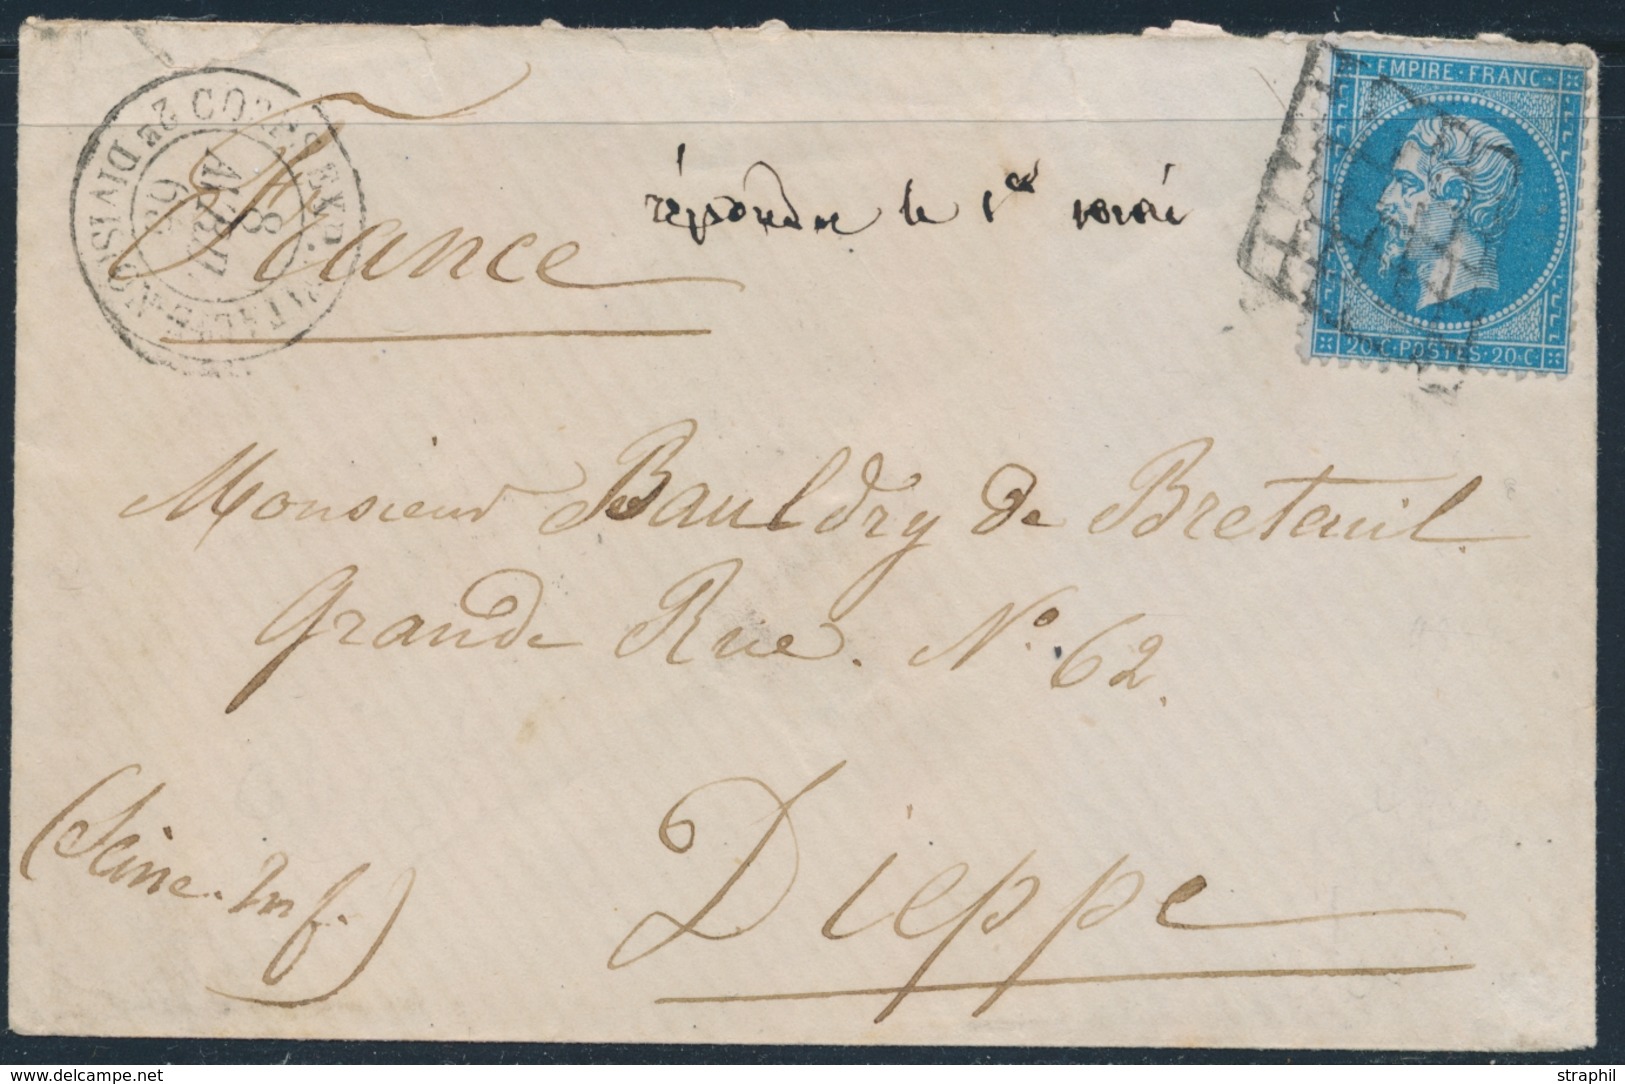 EMPIRE FRANC
CORPS EXP. D'ITALIE 2E DIVISION
8
AVRIL
France
répondu le 1er
20 C POSTES 20 C
Monsieur Bauldry de Breteuil
Grande Rue. No. 62.
Dieppe
(Seine. Inf.)
delcampe.net
straphil